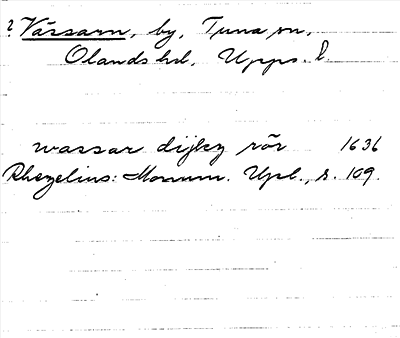 ? Vässarn, by, Tuna sn,
Olands hd, Upps. l.
wassar dijkz rör 1636
Rhezelius: Monum. Upl., s. 109.